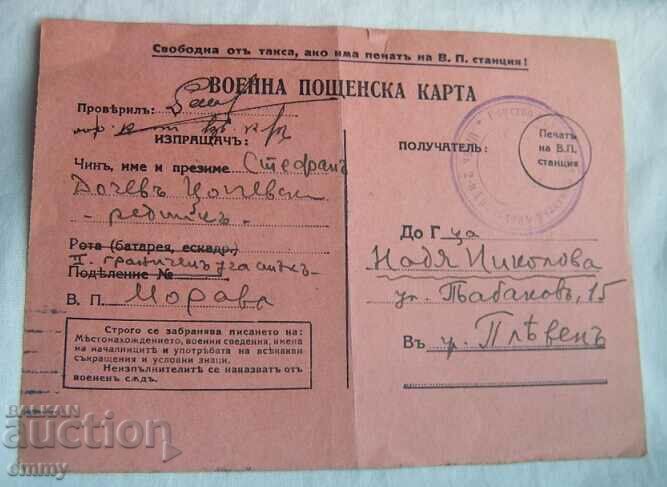 Свободна отъ такса, ако има печатъ на В. П. станция!
ВОЕННА ПОЩЕНСКА КАРТА
Провѣрилъ:
ИЗПРАЩАЧЪ:
Чинъ, име и презиме Стефанъ
Дочевъ
- редникъ -
Рота (батарея, ескадр.)
II. граниченъ участъкъ
Поделение №
В. П. Морава
Строго се забранява писането на:
Мѣстонахождението, военни сведения, имена
на началниците и употрѣбата на всѣкакви
съкращения и условни знаци.
Неизпълнителитѣ се наказватъ отъ
воененъ сѫдъ.
Печатъ
на В.П.
станция
ПОЛУЧАТЕЛЬ:
До Г ца
Надя Николова
ул. Табаковъ, 15
Въ гр. Плѣвенъ
BALKAN
auction
dmmy